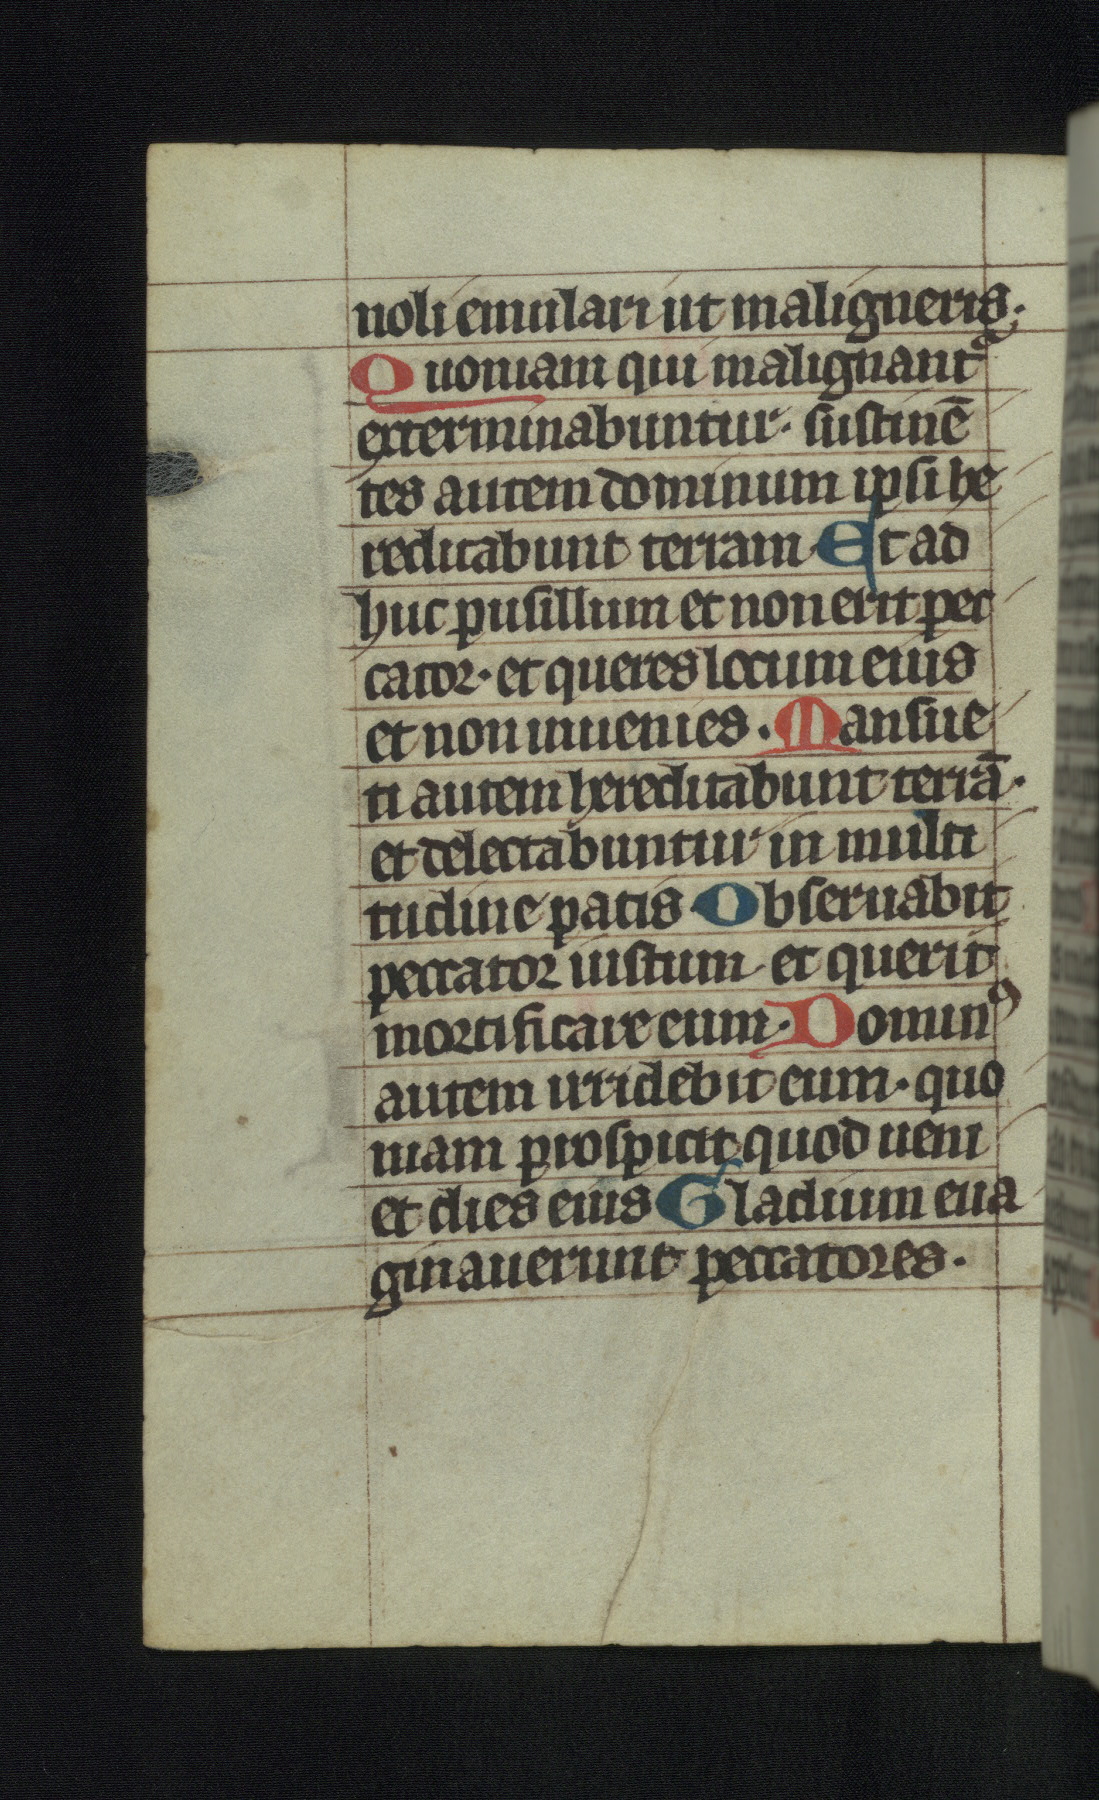 noli emulari ut maligneris.
Quoniam qui malignant᷑
exterminabuntur. sustinē
tes autem dominum ipsi he
reditabunt terram Et ad
huc pusillum et non erit pec
cator. et queres locum eius
et non inuenies. Mansue
ti autem hereditabunt terrā.
et delectabuntur in multi
tudine pacis Obseruabit
peccator iustum et querit
mortificare eum. Dominꝰ
autem irridebit eum. quo
niam prospicit quod ueni
et dies eius Gladium eua
ginauerunt peccatores.